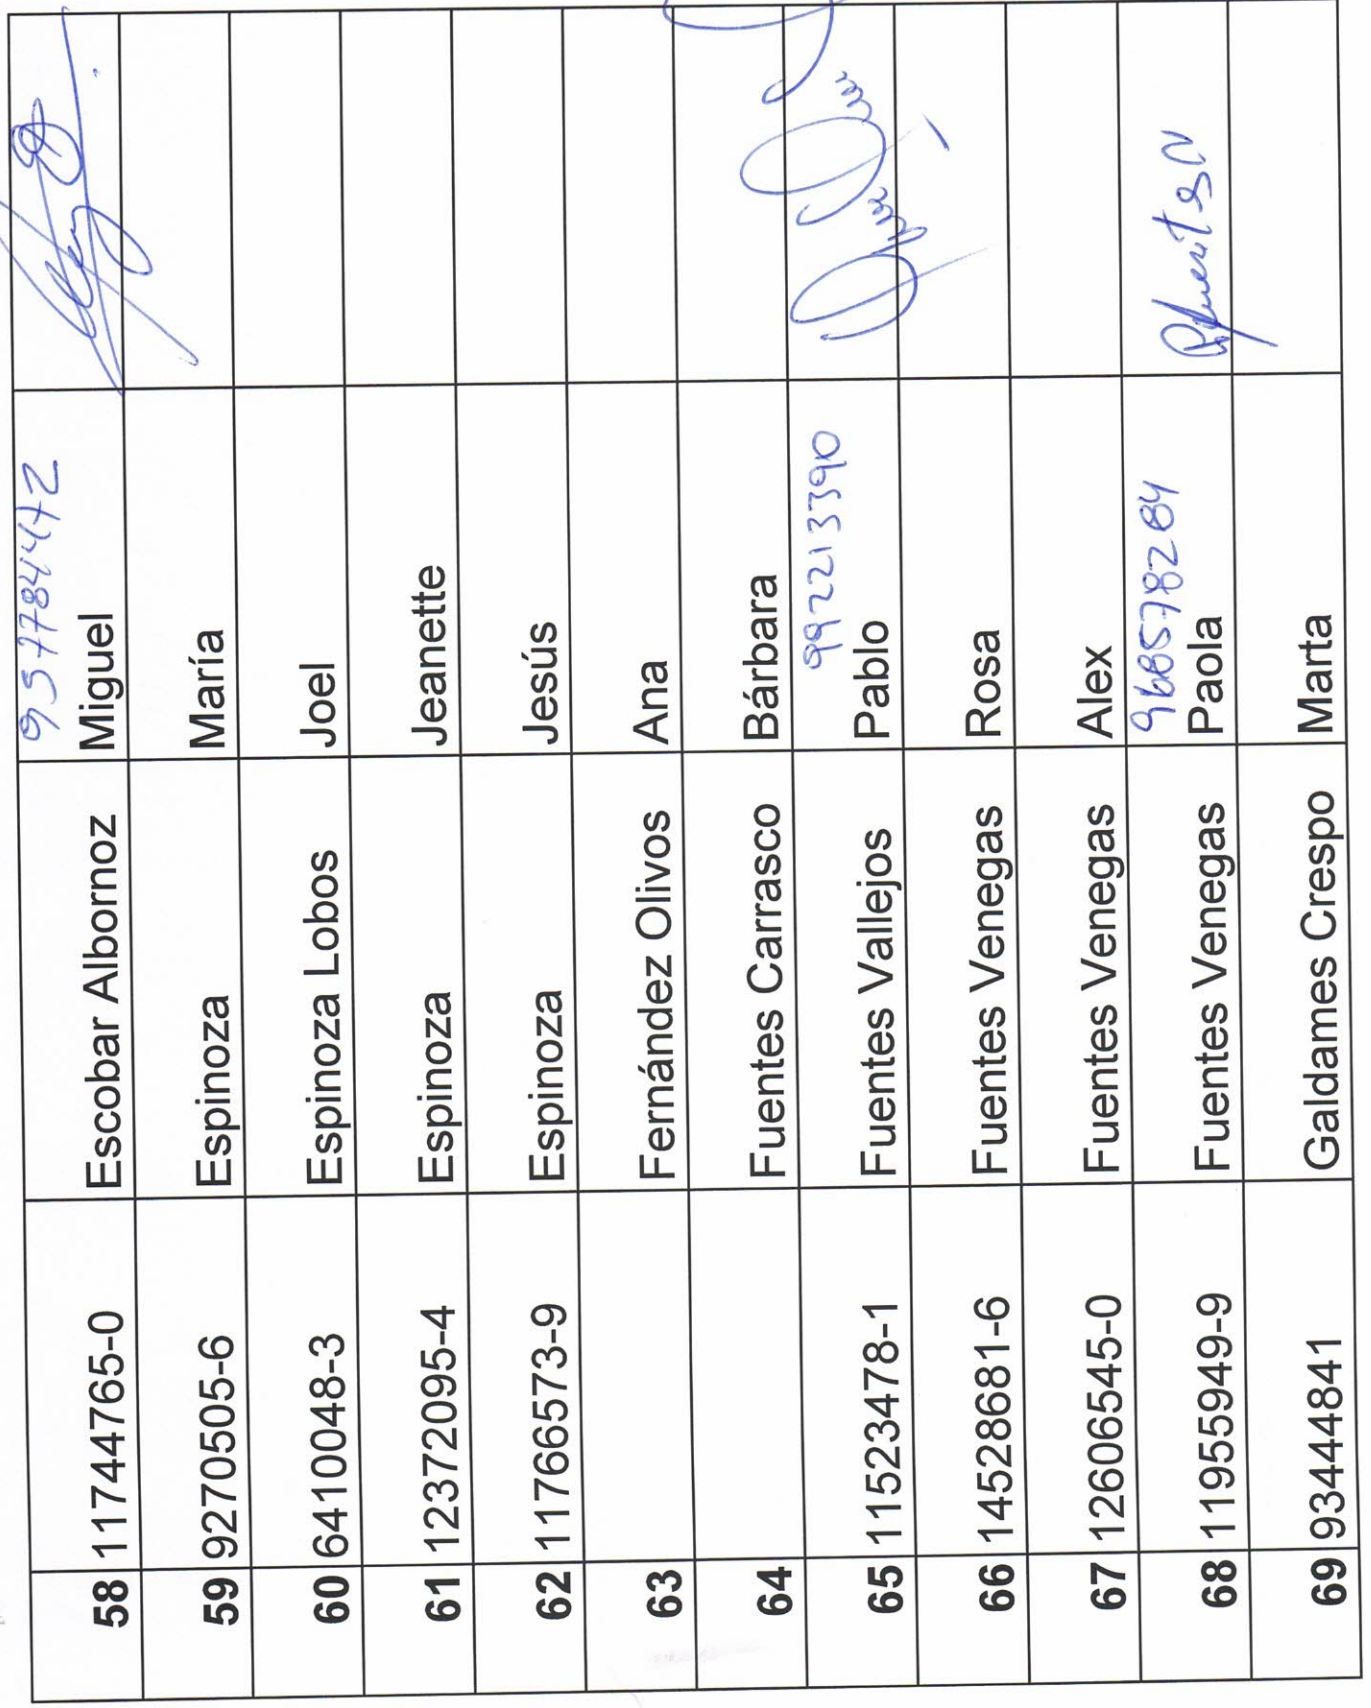 957784472
58 11744765-0 Escobar Albornoz Miguel
59 9270505-6 Espinoza María
60 6410048-3 Espinoza Lobos Joel
61 12372095-4 Espinoza Jeanette
62 11766573-9 Espinoza Jesús
63 Fernández Olivos Ana
64 Fuentes Carrasco Bárbara
992213390
65 11523478-1 Fuentes Vallejos Pablo
66 14528681-6 Fuentes Venegas Rosa
67 12606545-0 Fuentes Venegas Alex
968578284
68 11955949-9 Fuentes Venegas Paola
69 93444841 Galdames Crespo Marta